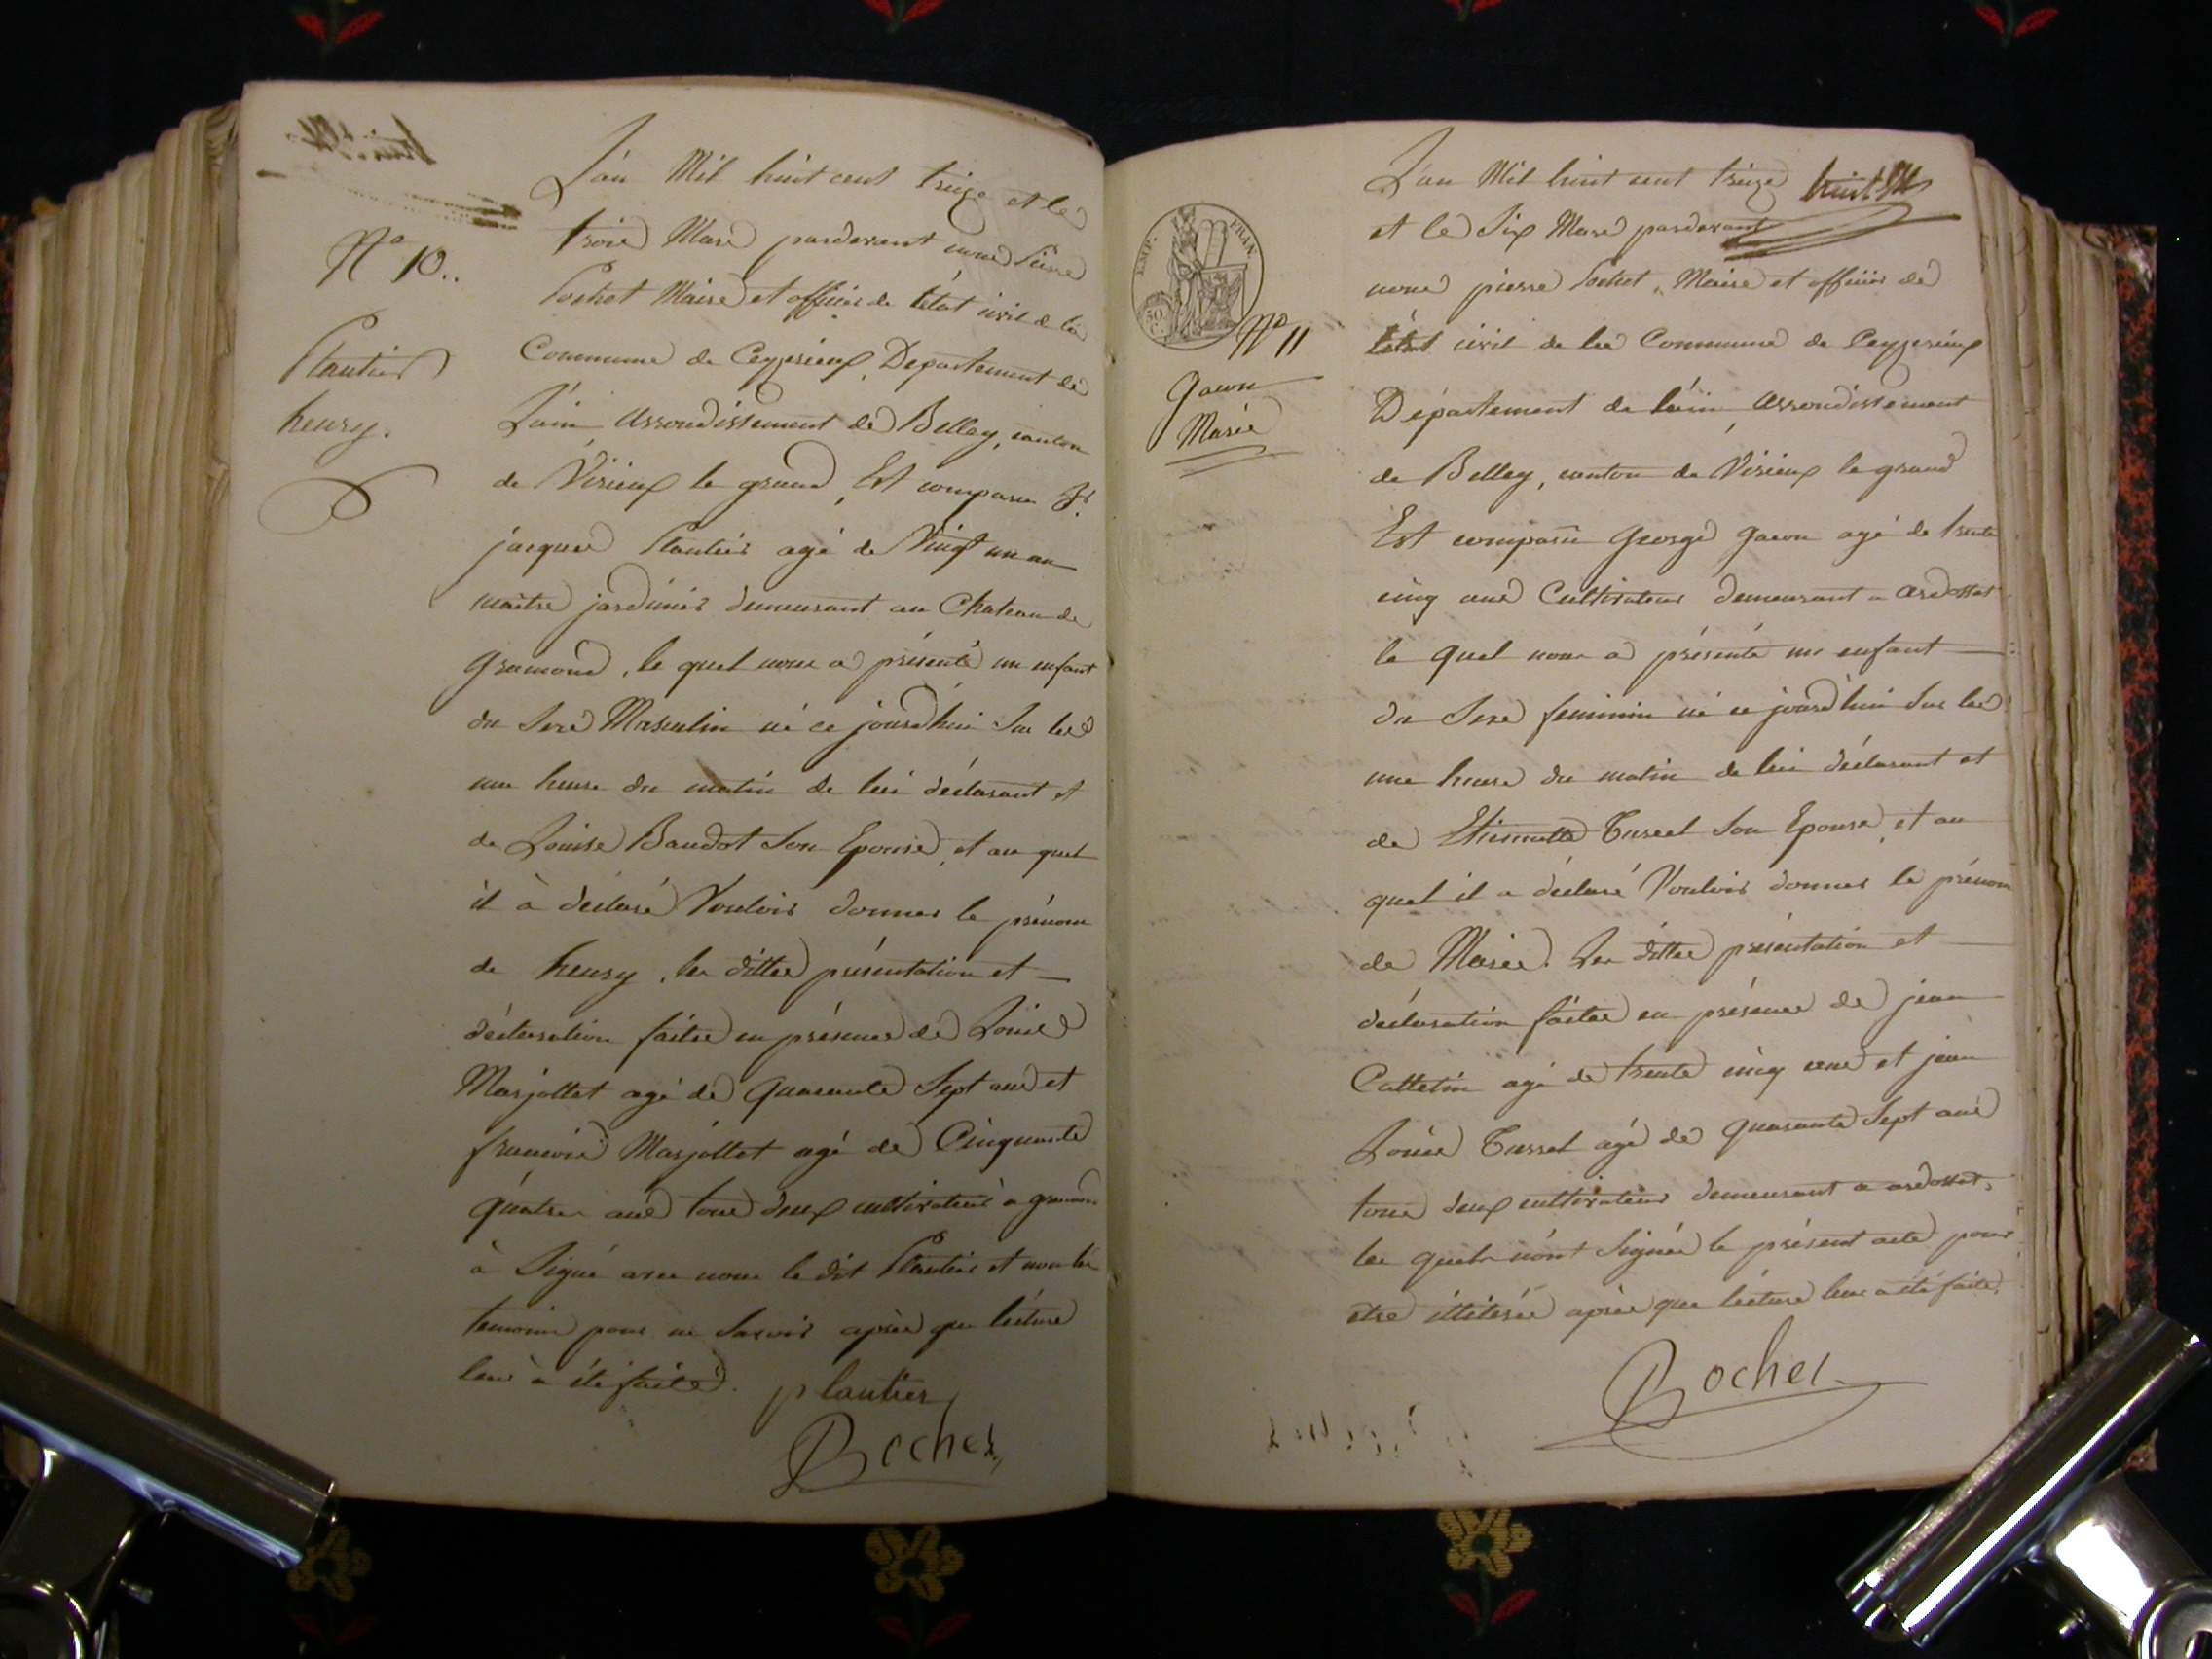 N° 10..
Plantier
henry.
L'an Mil huit cent treize et le
trois Mars pardevant nous Pierre
Pochet Maire et officier de l'état civil de la
Commune de Ceyzerieux, Departement de
L'ain Arrondissement de Belley, canton
de Virieux le grand, Est comparu Sr.
jacques Plantier agé de Vingt un an
maitre jardinier demeurant au Chateau de
gramond, le quel nous a présenté un enfant
du sexe Masculin né ce jourd'hui sur les
une heure du matin de lui déclarant et
de Louise Baudot son Epouse, et au quel
il à déclaré Vouloir donner le prénom
de henry, les dittes présentation et
déclaration faites en présence de Louis
Marjollet agé de quarante Sept ans et
francois Marjollet agé de Cinquante
quatre ans tous deux cultivateurs a gramon
à Signé avec nous le dit Plantier et non les
temoins pour ne Savoir après que lécture
leur à été faite. plantier
Bochet
EMP. FRAN.
50
C.
N° 11
gacon
Marie
L'an Mil huit cent treize huit
et le Six Mars pardevant
nous pierre Pochet, Maire et officier de
létat civil de la Commune de Ceyzerieux
Département de l'ain, Arrondissement
de Belley, canton de Virieux le grand
Est comparu George gacon agé de trente
cinq ans Cultivateur demeurant a ardosset
le quel nous a présenté un enfant
du Sexe feminin né ce jourd'hui sur les
une heure du matin de lui déclarant et
de Etiennette Tussel son Epouse, et au
quel il a déclaré Vouloir donner le prénom
de Marie. Les dittes présentation et
déclaration faites en présence de jean
Cattelin agé de trente cinq ans et jean
Louis Tussel agé de quarante Sept ans
tous deux cultivateurs demeurant a ardosset,
les quels n'ont Signés le présent acte pour
etre illiterés après que lécture leur a été faite,
Bochet